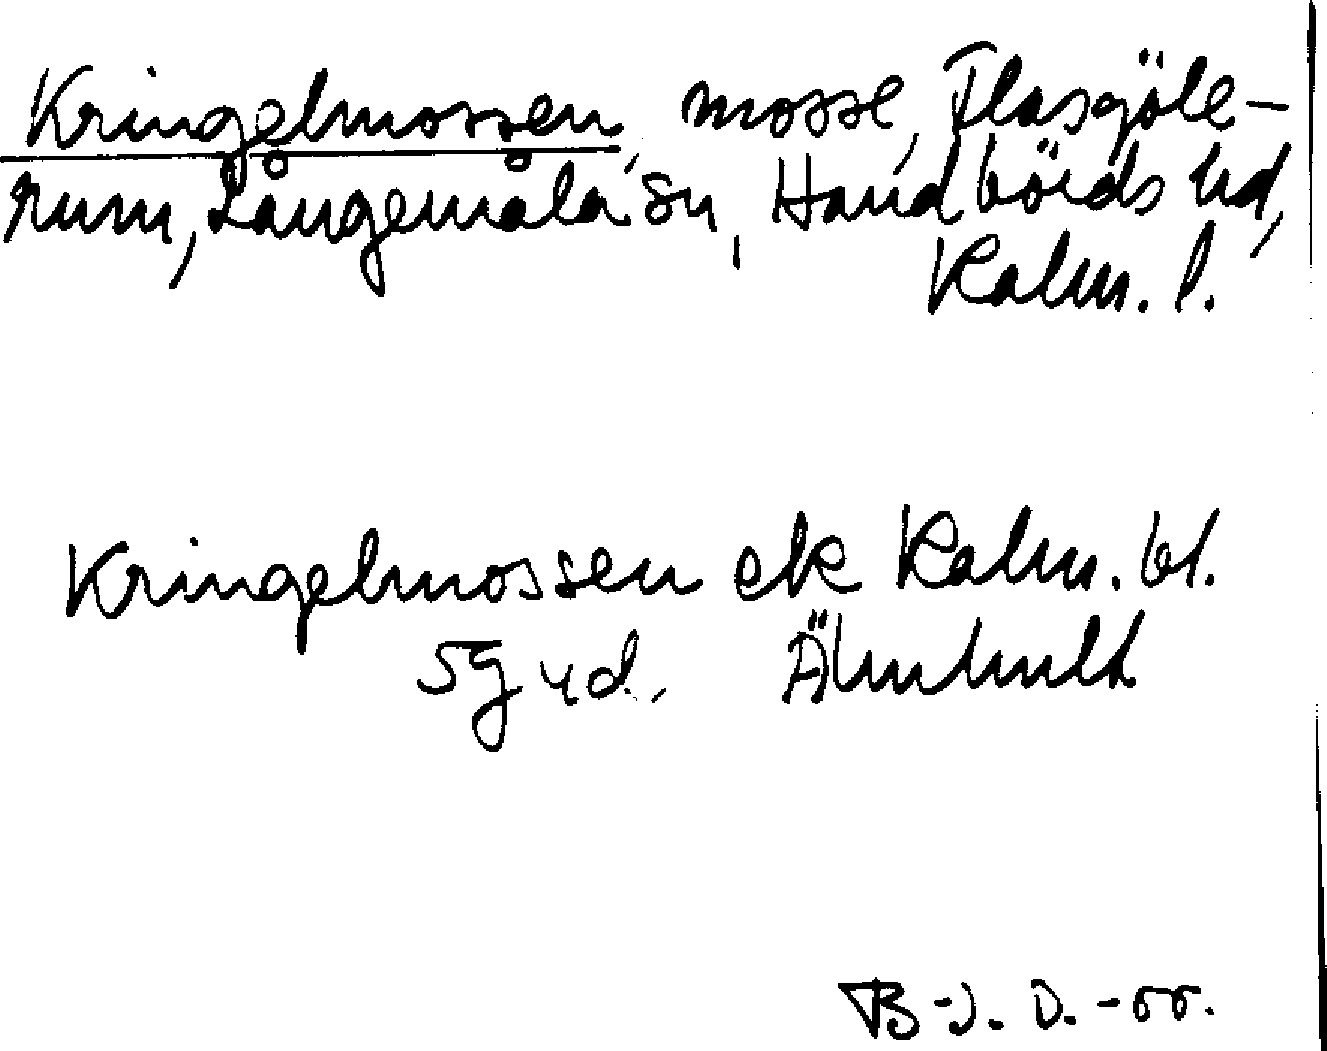 Kringelmossen, mosse, Flasgöle-
rum, Långemåla sn, Handbörds hd,
Kalm. l.
Kringelmossen ek Kalm. bl.
59 vd. Älmhult
B-J. D. -55.